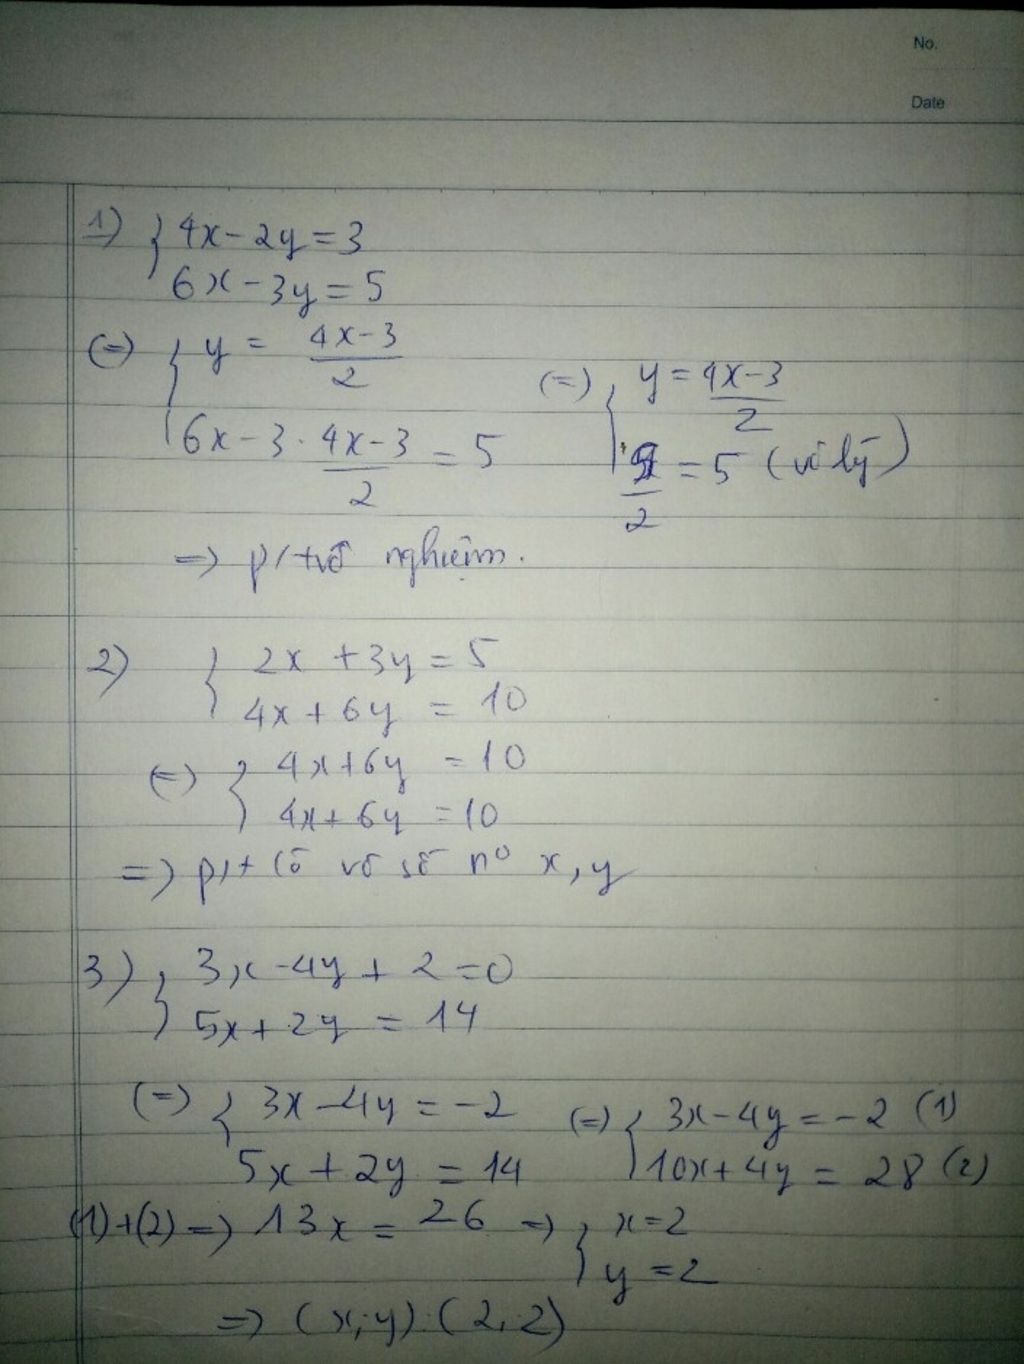 No.
Date
1) { 4x - 2y = 3
6x - 3y = 5
(=) { y = \frac{4x-3}{2}
6x - 3 . \frac{4x-3}{2} = 5
(=) { y = \frac{4x-3}{2}
= 5 (vô lý)
=> p/t vô nghiệm.
2) { 2x + 3y = 5
4x + 6y = 10
(=) { 4x + 6y = 10
4x + 6y = 10
=> p/t có vô số n° x, y
3) { 3x - 4y + 2 = 0
5x + 2y = 14
(=) { 3x - 4y = -2
5x + 2y = 14
(=) { 3x - 4y = -2 (1)
10x + 4y = 28 (2)
(1)+(2) => 13x = 26 => { x = 2
y = 2
=> (x;y) : (2;2)